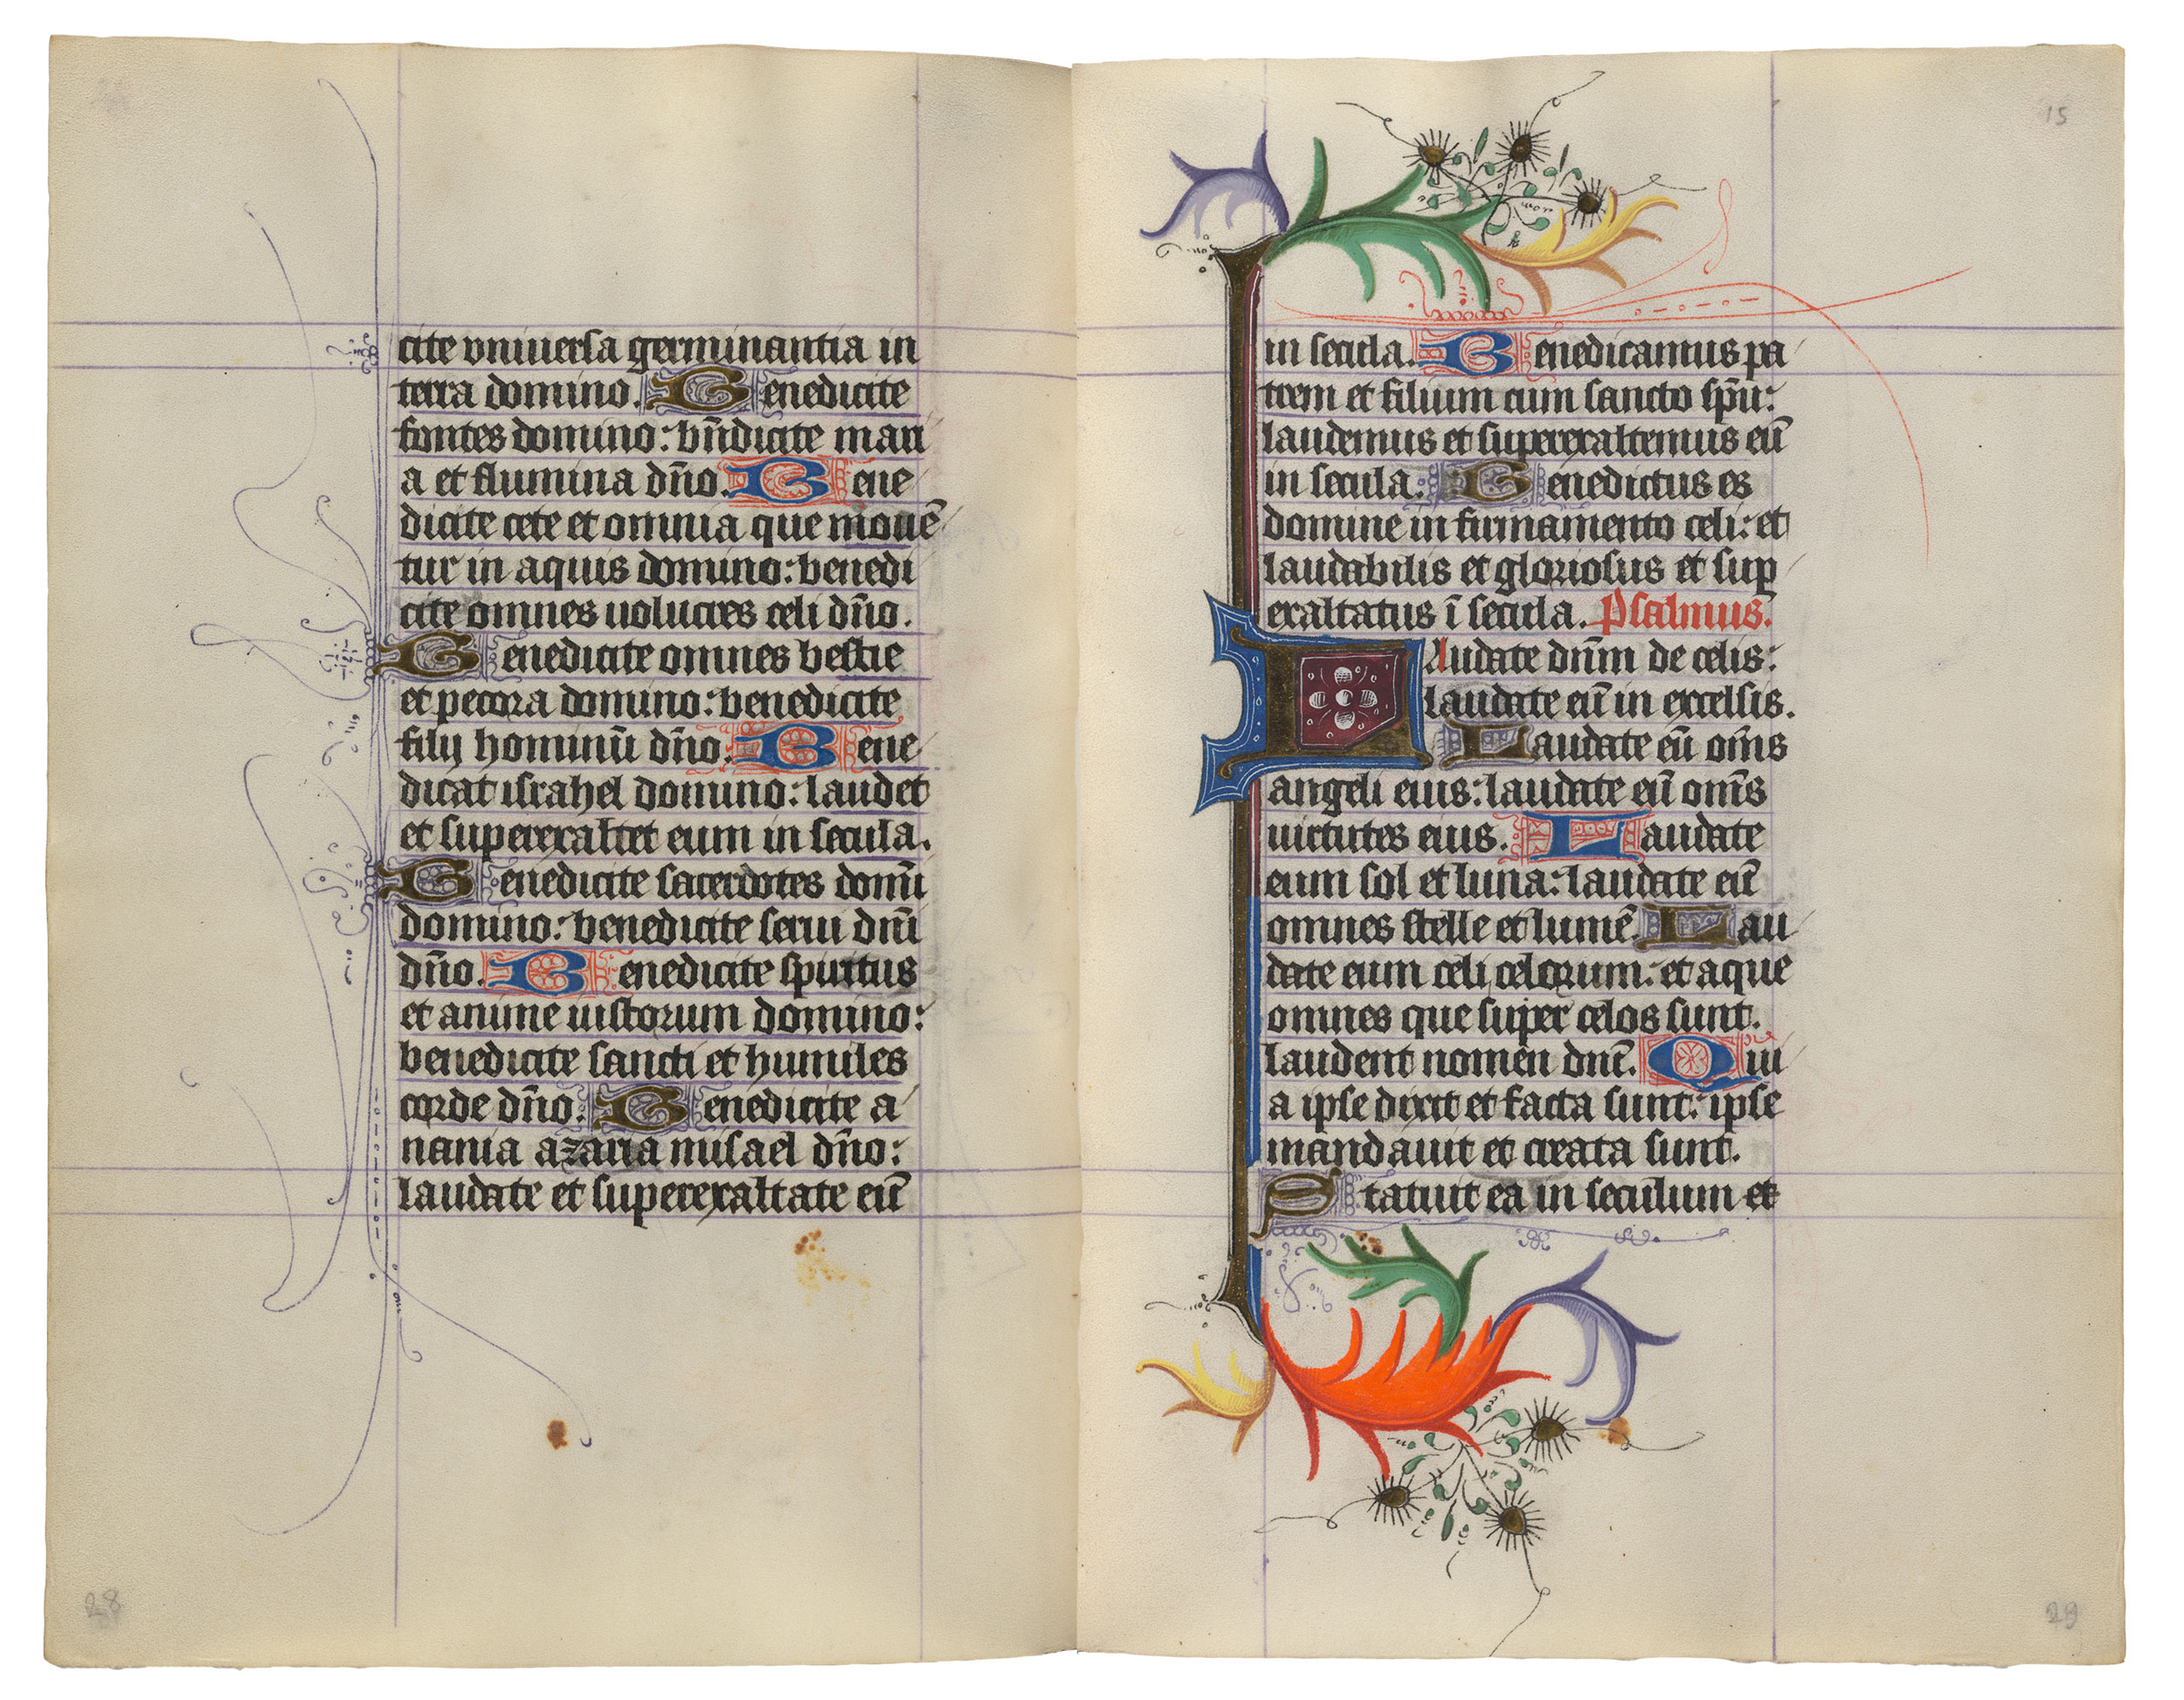 cite vniuersa germinantia in
terra domino. Benedicite
fontes domino: bn̄dicite mari
a et flumina dn̄o. Bene
dicite cete et omnia que mouē
tur in aquis domino: benedi
cite omnes uolucres celi dn̄o.
Benedicite omnes bestie
et pecora domino: benedicite
filij hominū dn̄o. Bene
dicat israhel domino: laudet
et superexaltet eum in secula.
Benedicite sacerdotes domī
domino: benedicite serui dnī
dn̄o. Benedicite spiritus
et anime iustorum domino:
benedicite sancti et humiles
corde dn̄o. Benedicite a
nania azaria misael dn̄o:
laudate et superexaltate eū
28
15
in secula. Benedicamus pa
trem et filium cum sancto sp̄u:
laudemus et superexaltemus eū
in secula. Benedictus es
domine in firmamento celi: et
laudabilis et gloriosus et sup
exaltatus ī secula. Psalmus.
LAudate dnm̄ de celis:
laudate eū in excelsis.
Laudate eū om̄s
angeli eius: laudate eū om̄s
uirtutes eius. Laudate
eum sol et luna: laudate eū
omnes stelle et lumē. Lau
date eum celi celorum: et aque
omnes que super celos sunt.
laudent nomen dn̄i. Qui
a ipse dixit et facta sunt: ipse
mandauit et creata sunt.
Statuit ea in seculum et
29